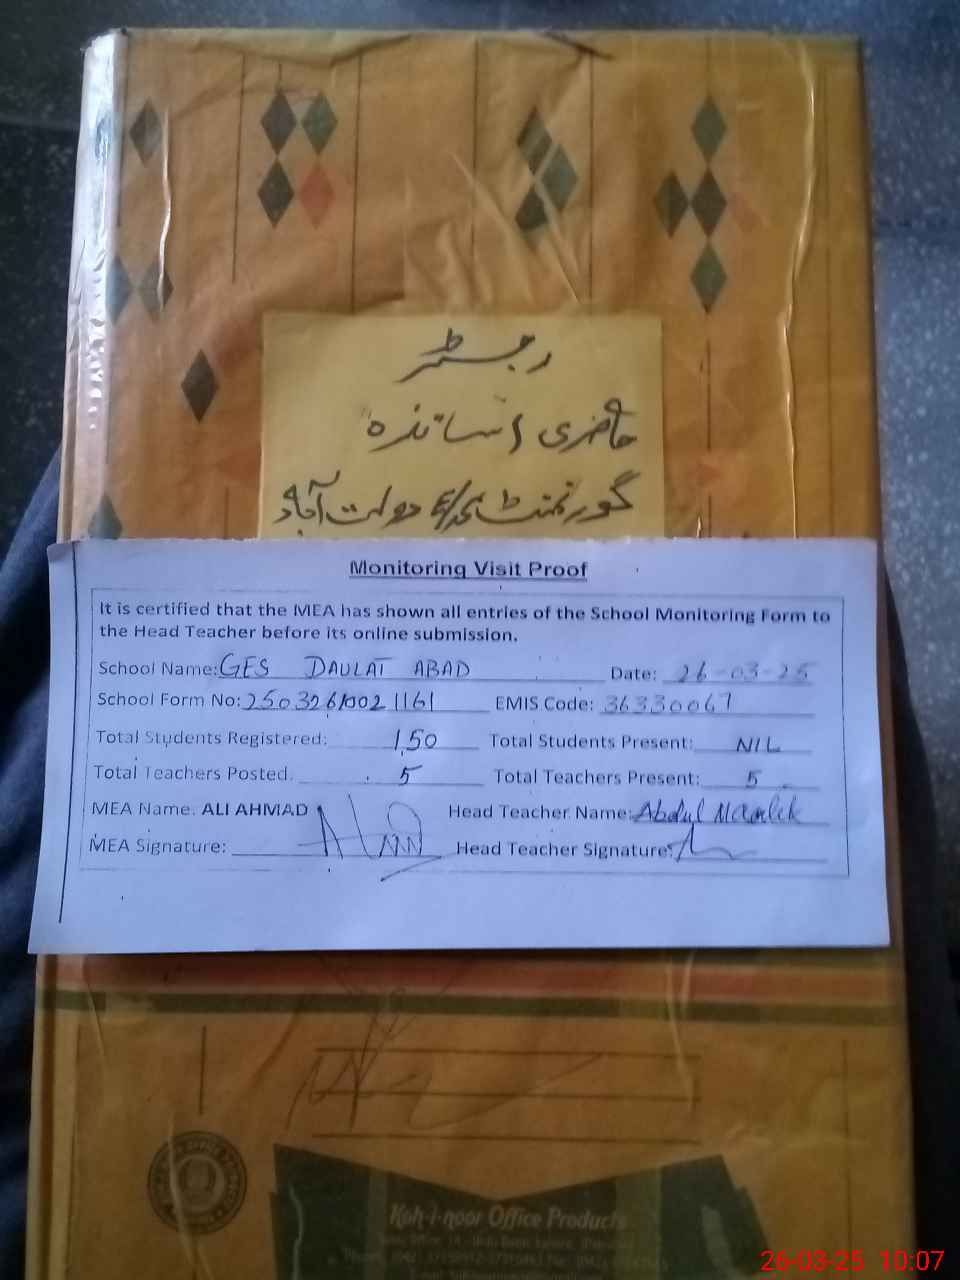 رجسٹر
حاضری اساتذہ
گورنمنٹ دولت آباد
Monitoring Visit Proof
It is certified that the MEA has shown all entries of the School Monitoring Form to
the Head Teacher before its online submission.
School Name: GES DAULAT ABAD Date: 26-03-25
School Form No: EMIS Code: 36330067
Total Students Registered: 150 Total Students Present: NIL
Total Teachers Posted. 5 Total Teachers Present: 5
MEA Name. ALI AHMAD Head Teacher Name: Abdul Maalik
MEA Signature: Head Teacher Signature:
Koh-i-noor Office Products
26-03-25 10:07